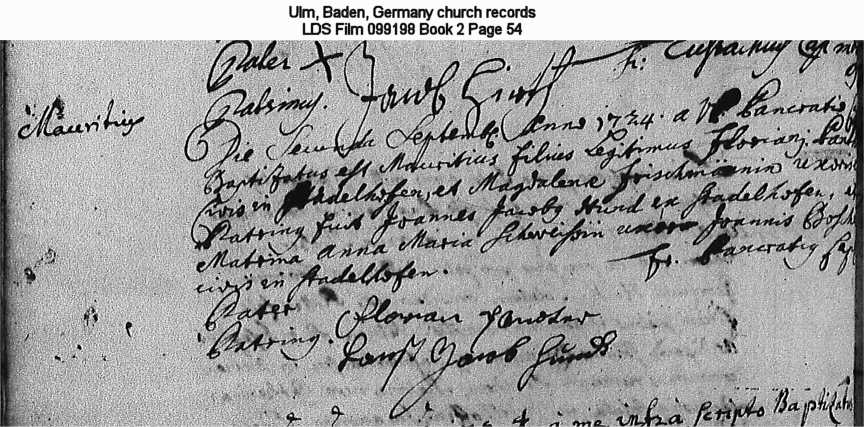 Ulm, Baden, Germany church records
LDS Film 099198 Book 2 Page 54
Pater X fr: Eustachius Cap
Patrinus. Jacob
Mauritius
Die Secunda Septemb. Anno 1724. a V. P. Pancratio
Baptizatus est Mauritius filius Legitimus Floriani
civis in Stadelhofen, et Magdalenæ Frischmännin uxoris
Patrinus fuit Joannes Jacobus Hund ex Stadelhofen,
Matrina Anna Maria Schweissin uxor Joannis Bosch
civis in Stadelhofen. Fr. Pancratius
Pater Florian
Patrinus. Hanß Jacob Hundt
a me infra scripto Baptizatus